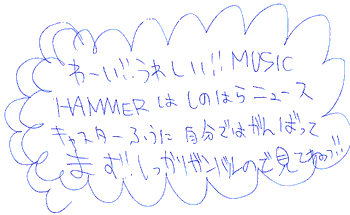 わーい!!うれしい!! MUSIC
HAMMERはしのはらニュース
キャスターふうに自分ではがんばって
ます!!しっかりガンバルので見てねっ!!